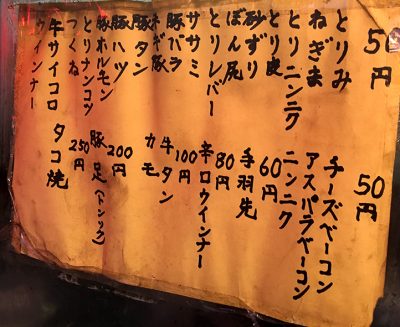 50円
とりみ
ねぎま
とりニンニク
とり皮
砂ずり
ぼん尻
とりレバー
ササミ
豚バラ
ネギ豚
豚タン
豚ハツ
豚ホルモン
とりナンコツ
つくね
牛サイコロ
ウインナー
50円
チーズベーコン
アスパラベーコン
ニンニク
60円
手羽先
80円
辛口ウインナー
100円
牛タン
カモ
200円
豚足(トンソク)
250円
タコ焼